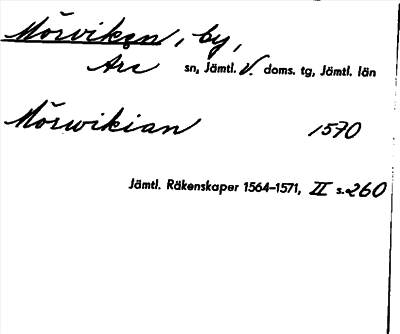 Mörviken, by,
Are sn, Jämtl. V. doms. tg, Jämtl. län
Mörwikian 1570
Jämtl. Räkenskaper 1564–1571, II s. 260